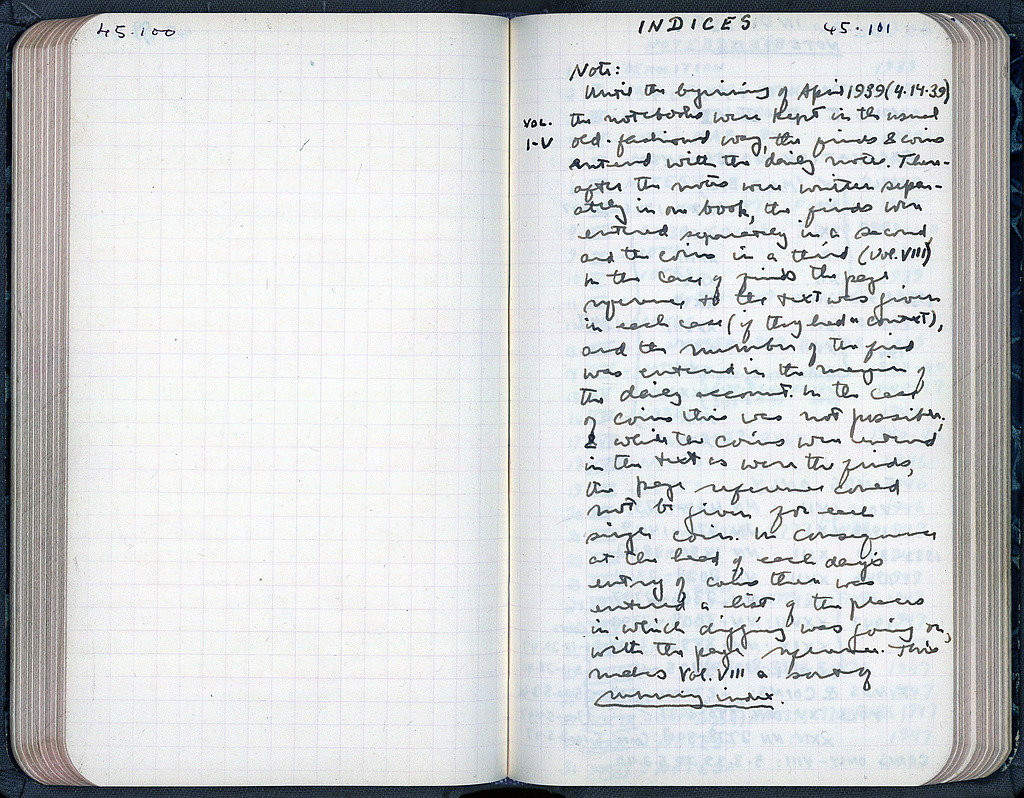 45.100
INDICES 45.101
Note:
Until the beginning of April 1939 (4.14.39)
VOL. I-V
the notebooks were kept in the usual
old-fashioned way, the finds & coins
entered with the daily notes. There-
after the notes were written separ-
ately in one book, the finds were
entered separately in a second,
and the coins in a third (Vol. VIII)
In the case of finds the page
reference to the text was given
in each case (if they had a context),
and the number of the find
was entered in the margin of
the daily account. In the case
of coins this was not possible,
& while the coins were entered
in the text as were the finds,
the page reference could
not be given for each
single coin. In consequence
at the head of each day's
entry of coins there was
entered a list of the places
in which digging was going on,
with the page reference. This
makes Vol. VIII a sort of
running index.